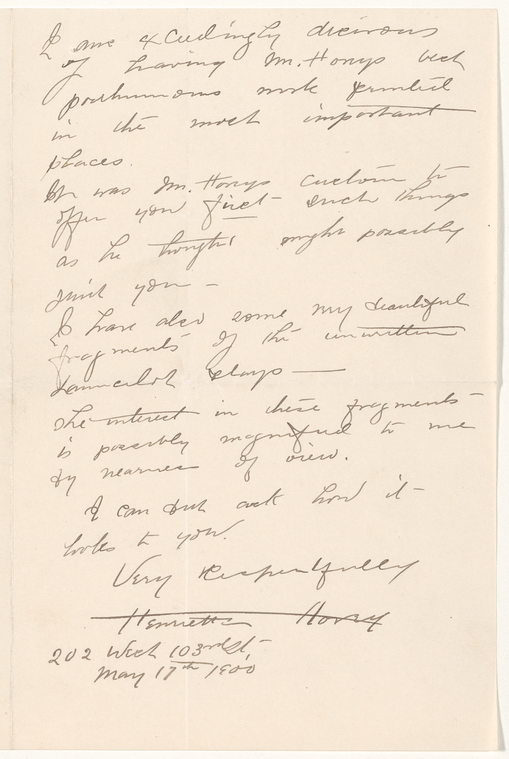 I am exceedingly desirous
of having Mr. Hoveys best
posthumous work printed
in the most important
places.
It was Mr. Hoveys custom to
offer you first such things
as he thought might possibly
suit you —
I have also some very beautiful
fragments of the unwritten
Launcelot plays —
The interest in these fragments
is possibly magnified to me
by nearness of view.
I can but ask how it
looks to you.
Very Respectfully
Henrietta Hovey
202 West 103rd St,
May 17th 1900